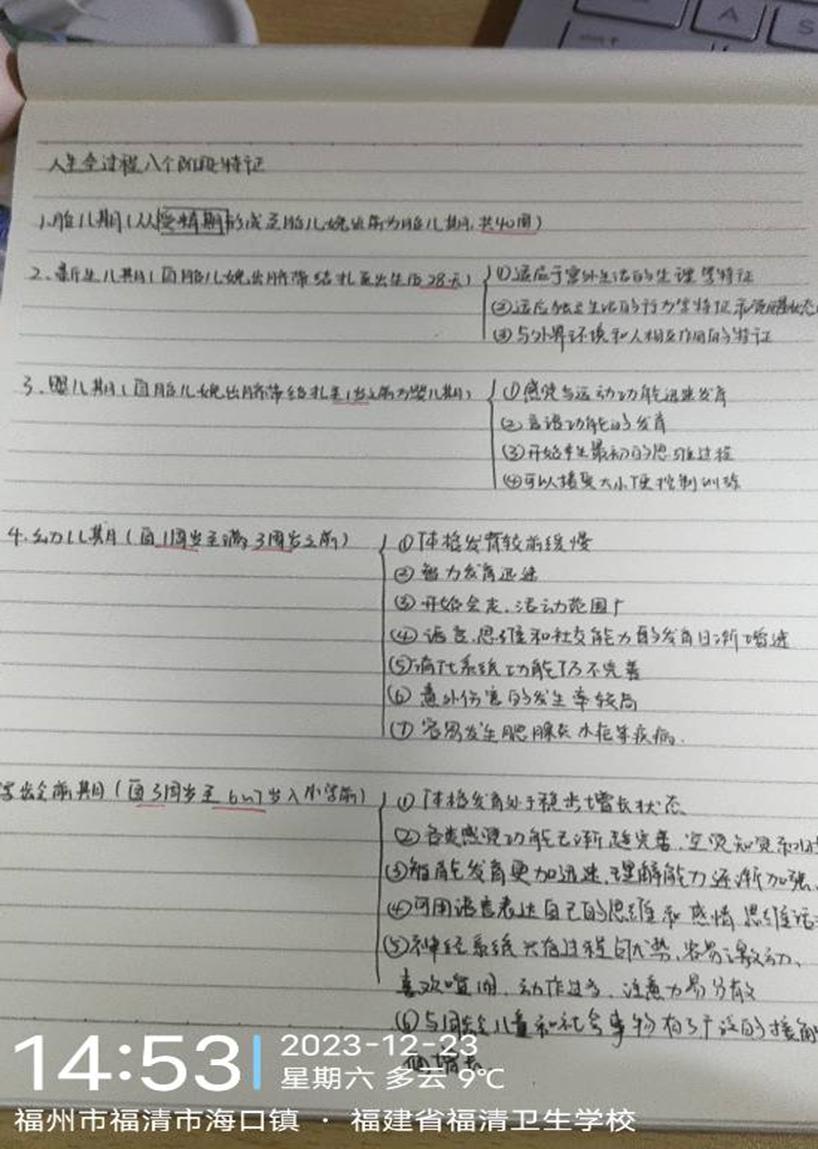 人生全过程八个阶段特征
1.胎儿期(从受精期形成至胎儿娩出前为胎儿期,共40周)
2.新生儿期(自胎儿娩出脐带结扎至出生后28天)
①适应于宫外生活的生理学特征
②适应独立生活的行为学特征和觉醒状态
③与外界环境和人相互作用的特征
3.婴儿期(自胎儿娩出脐带结扎至1岁之前为婴儿期)
①感觉与运动功能迅速发育
②言语功能的发育
③开始产生最初的思维过程
④可以接受大小便控制训练
4.幼儿期(自1周岁至满3周岁之前)
①体格发育较前缓慢
②智力发育迅速
③开始会走.活动范围广
④语言.思维和社交能力的发育日渐增速
⑤消化系统功能仍不完善
⑥意外伤害的发生率较高
⑦容易发生肥胖 水痘等疾病.
学龄前期(自3周岁至6~7岁入小学前)
①体格发育处于稳步增长状态
②各类感觉功能已渐趋完善.空间知觉和
③智能发育更加迅速.理解能力逐渐加强.
④可用语言表达自己的思维和感情.思维活
⑤神经系统兴奋过程占优势.容易激动.
喜欢喧闹.动作过多.注意力易分散
⑥与同龄儿童和社会事物有了广泛的接触
14:53
2023-12-23
星期六 多云 9℃
福州市福清市海口镇 · 福建省福清卫生学校
A
S